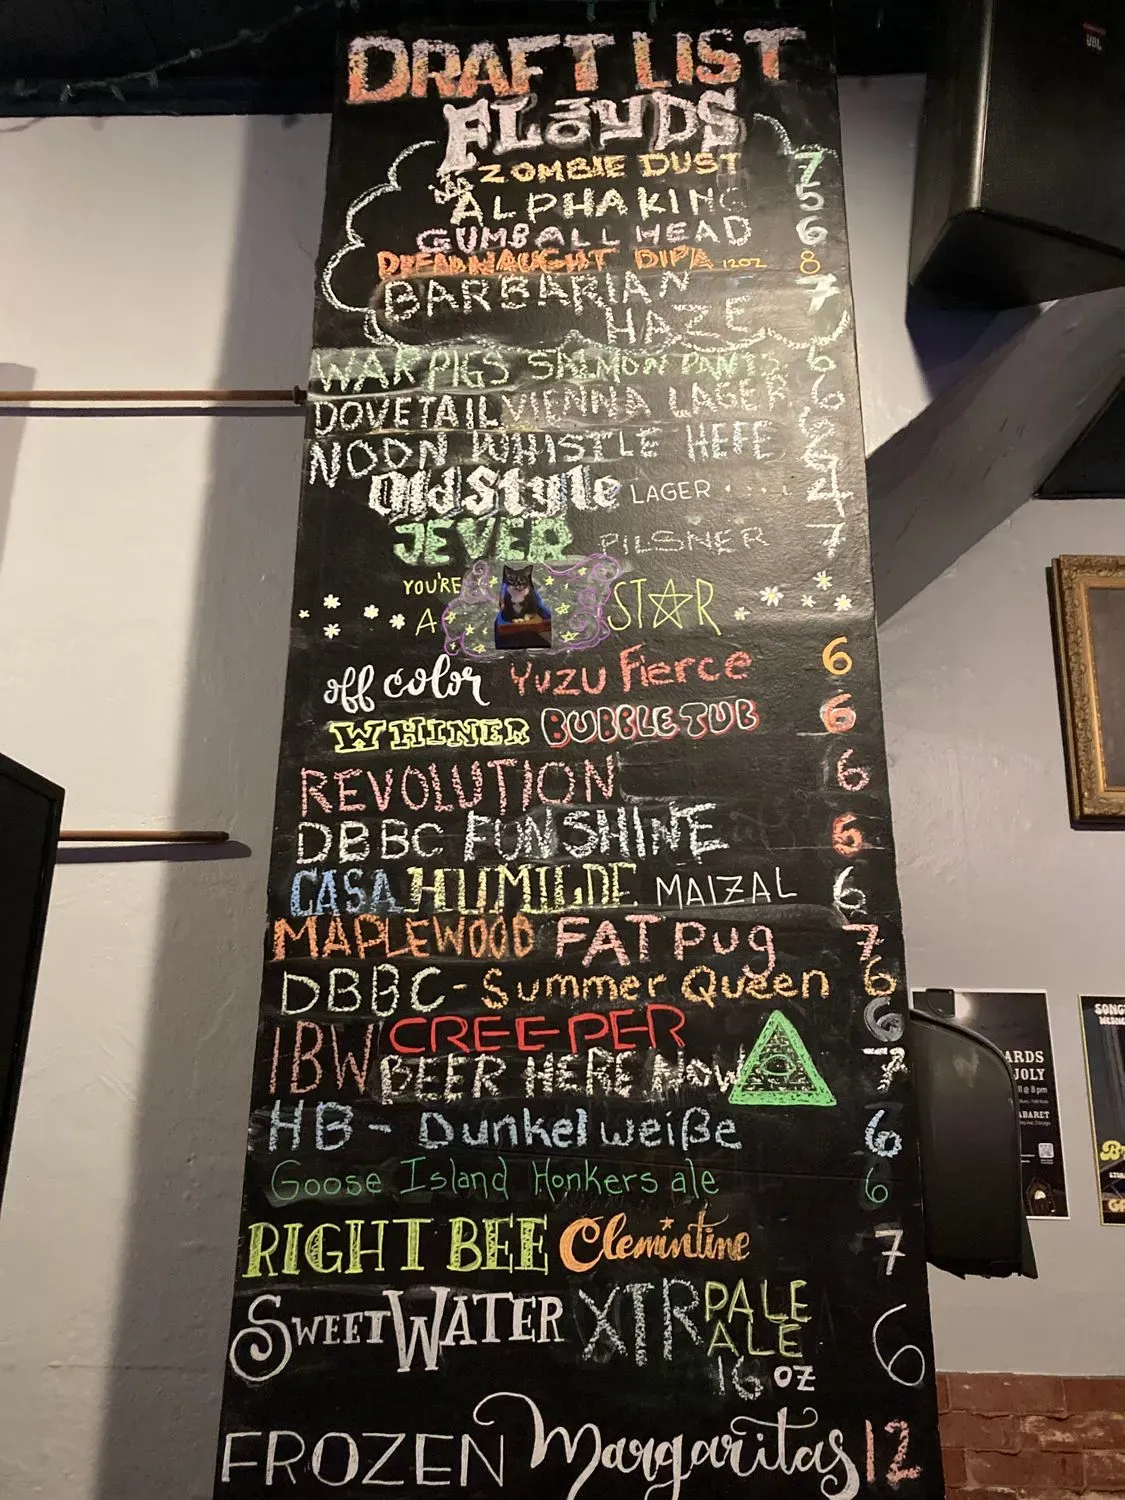 DRAFT LIST
FLOYDS
ZOMBIE DUST 7
ALPHA KING 5
GUMBALL HEAD 6
DREADNAUGHT DIPA 12OZ 8
BARBARIAN 7
HAZE
WAR PIGS SALMON PANTS 6
DOVETAIL VIENNA LAGER 6
NOON WHISTLE HEFE 6
Old Style LAGER .... 4
JEVER PILSNER 7
YOU'RE
A STAR
off color Yuzu Fierce 6
WHINER BUBBLE TUB 6
REVOLUTION 6
DBBC FUNSHINE 6
CASA HUMILDE MAIZAL 6
MAPLEWOOD FAT Pug 7
DBBC - Summer Queen 6
IBW CREEPER 6
BEER HERE NOW 7
HB - Dunkel weiße 6
Goose Island Honkers ale 6
RIGHT BEE Clemintine 7
SWEETWATER XTR PALE ALE 6
16 oz
FROZEN Margaritas 12
JBL
ARDS
JOLY
@ 8 pm
ABARET
SONG